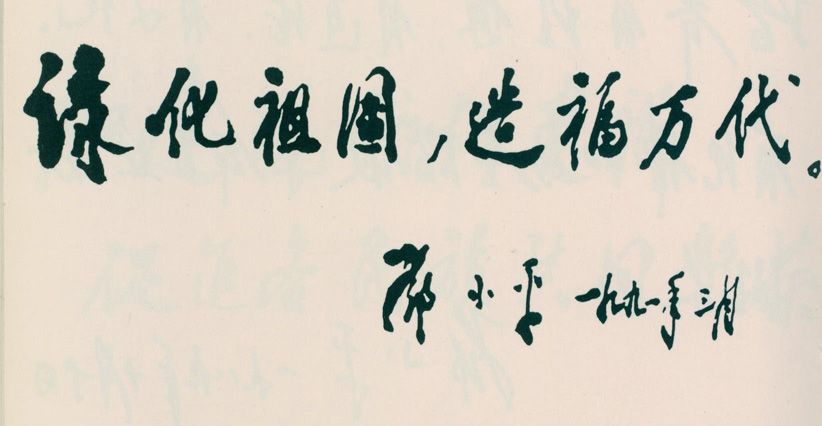 绿化祖国，造福万代。
邓小平 一九九一年三月